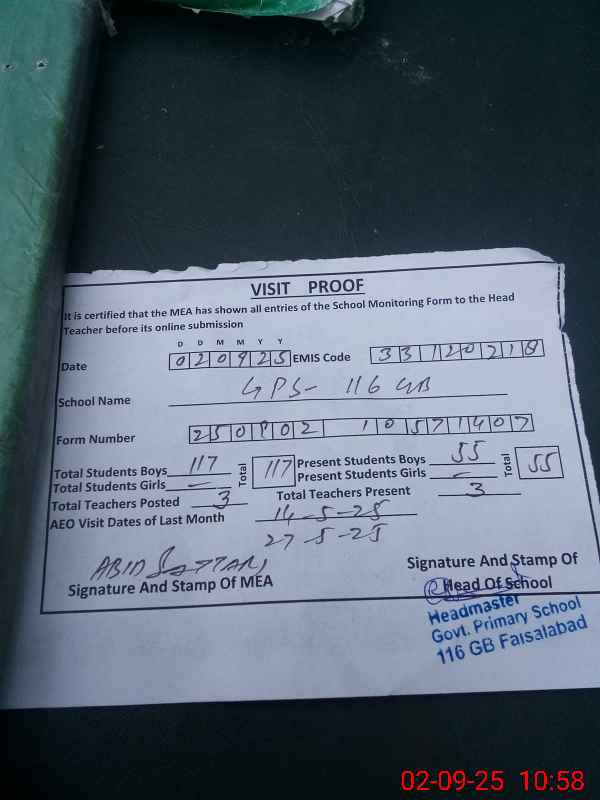 VISIT PROOF
It is certified that the MEA has shown all entries of the School Monitoring Form to the Head
Teacher before its online submission
D D M M Y Y
Date 020925 EMIS Code 33120218
School Name GPS- 116 GB
Form Number 250902 10571407
Total Students Boys 117 Total 117 Present Students Boys 55 Total 55
Total Students Girls – Present Students Girls –
Total Teachers Posted 3 Total Teachers Present 3
AEO Visit Dates of Last Month 14-5-25
27-5-25
ABID SATTAR
Signature And Stamp Of MEA
Signature And Stamp Of
Head Of School
Headmaster
Govt. Primary School
116 GB Faisalabad
02-09-25 10:58